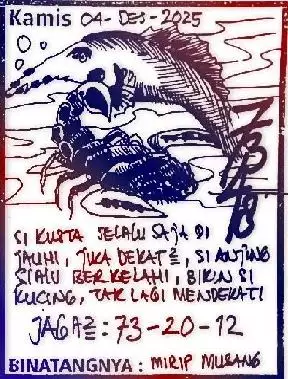 Kamis 04-DES-2025
SI KUSTA SELALU SAJA DI
JAUHI, JIKA DEKAT², SI ANJING
SIALU BERKELAHI, BIKIN SI
KUCING, TAK LAGI MENDEKATI
JAGA²: 73-20-12
BINATANGNYA : MIRIP MUSANG